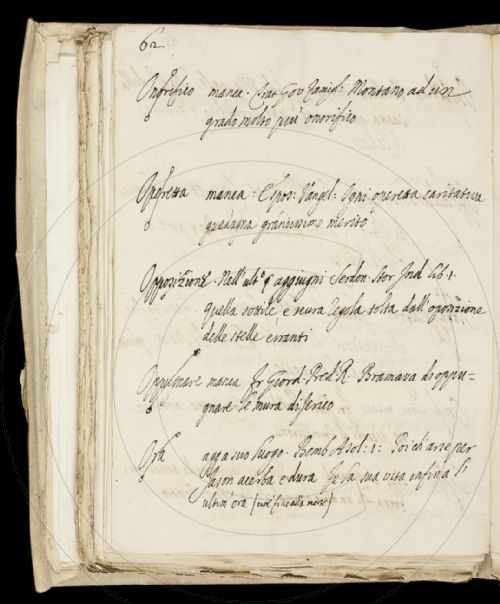 62.
Onorifico manca. Trat. Gov. famigl: Montano ad un
grado molto più onorifico
Operetta manca. Espos: Vangel: Ogni operetta caritativa
guadagna grandissimo merito
Opposizione. Nell'ult.o § aggiugni Serdon. Stor. Ind. lib. 1.
quella sottile, e sicura regola tolta dall'oposizione
delle stelle erranti
Oppugnare manca Fr. Giord. Pred. R. Bramava di oppu=
gnare le mura di Jerico
Ora a suo luogo. Bemb. Asol: 1: Poich'arse per
Jason acerba e dura Fu la sua vita infino a l'
ultim'ora (cioè fino alla morte)